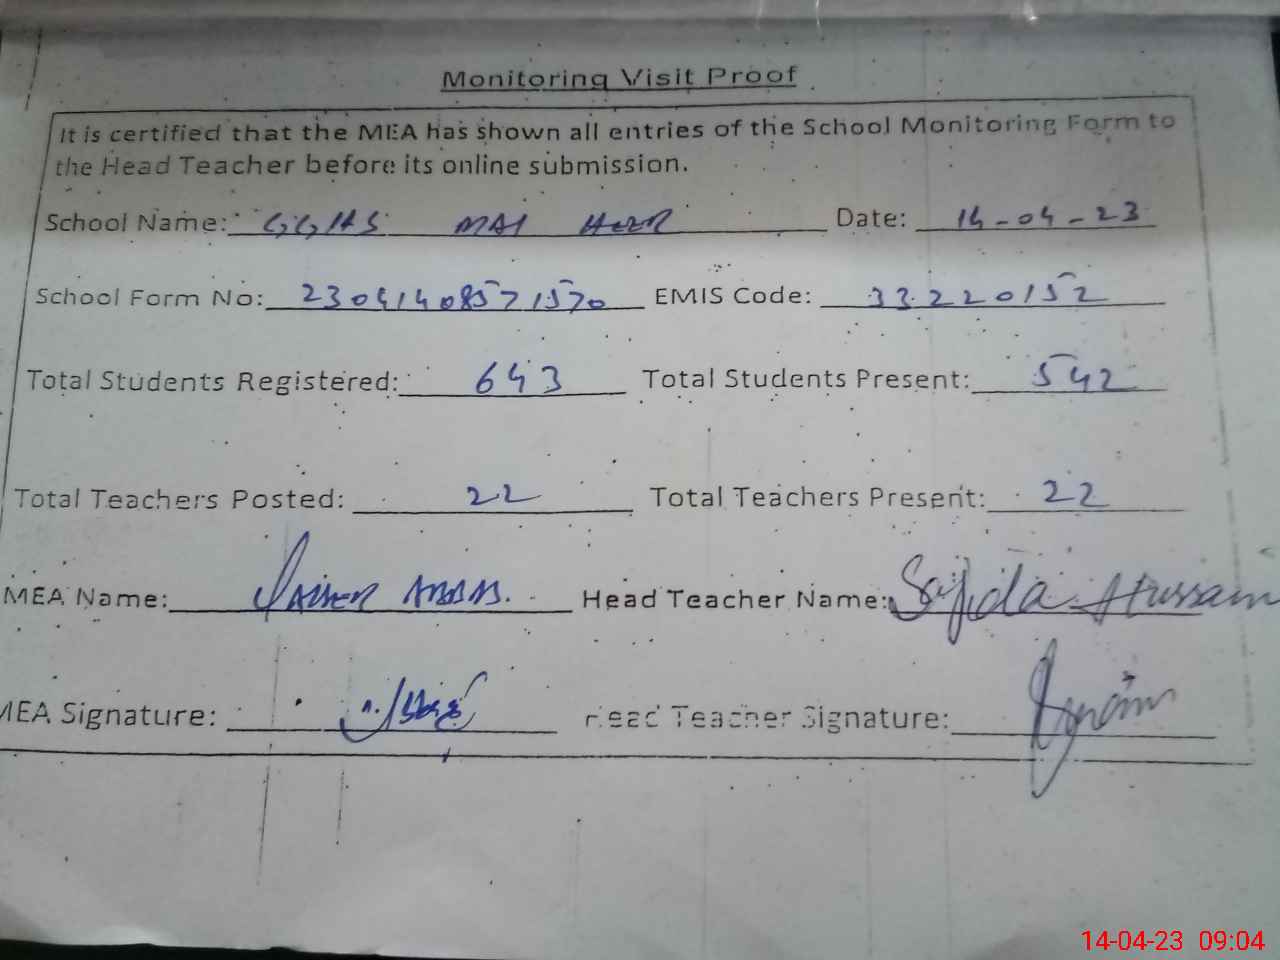 Monitoring Visit Proof
It is certified that the MEA has shown all entries of the School Monitoring Form to
the Head Teacher before its online submission.
School Name: GGHS MAI HEER Date: 14-04-23
School Form No: 23041408571570 EMIS Code: 33220152
Total Students Registered: 643 Total Students Present: 542
Total Teachers Posted: 22 Total Teachers Present: 22
MEA Name: Head Teacher Name: Sajida Hussain
MEA Signature: Head Teacher Signature:
14-04-23 09:04